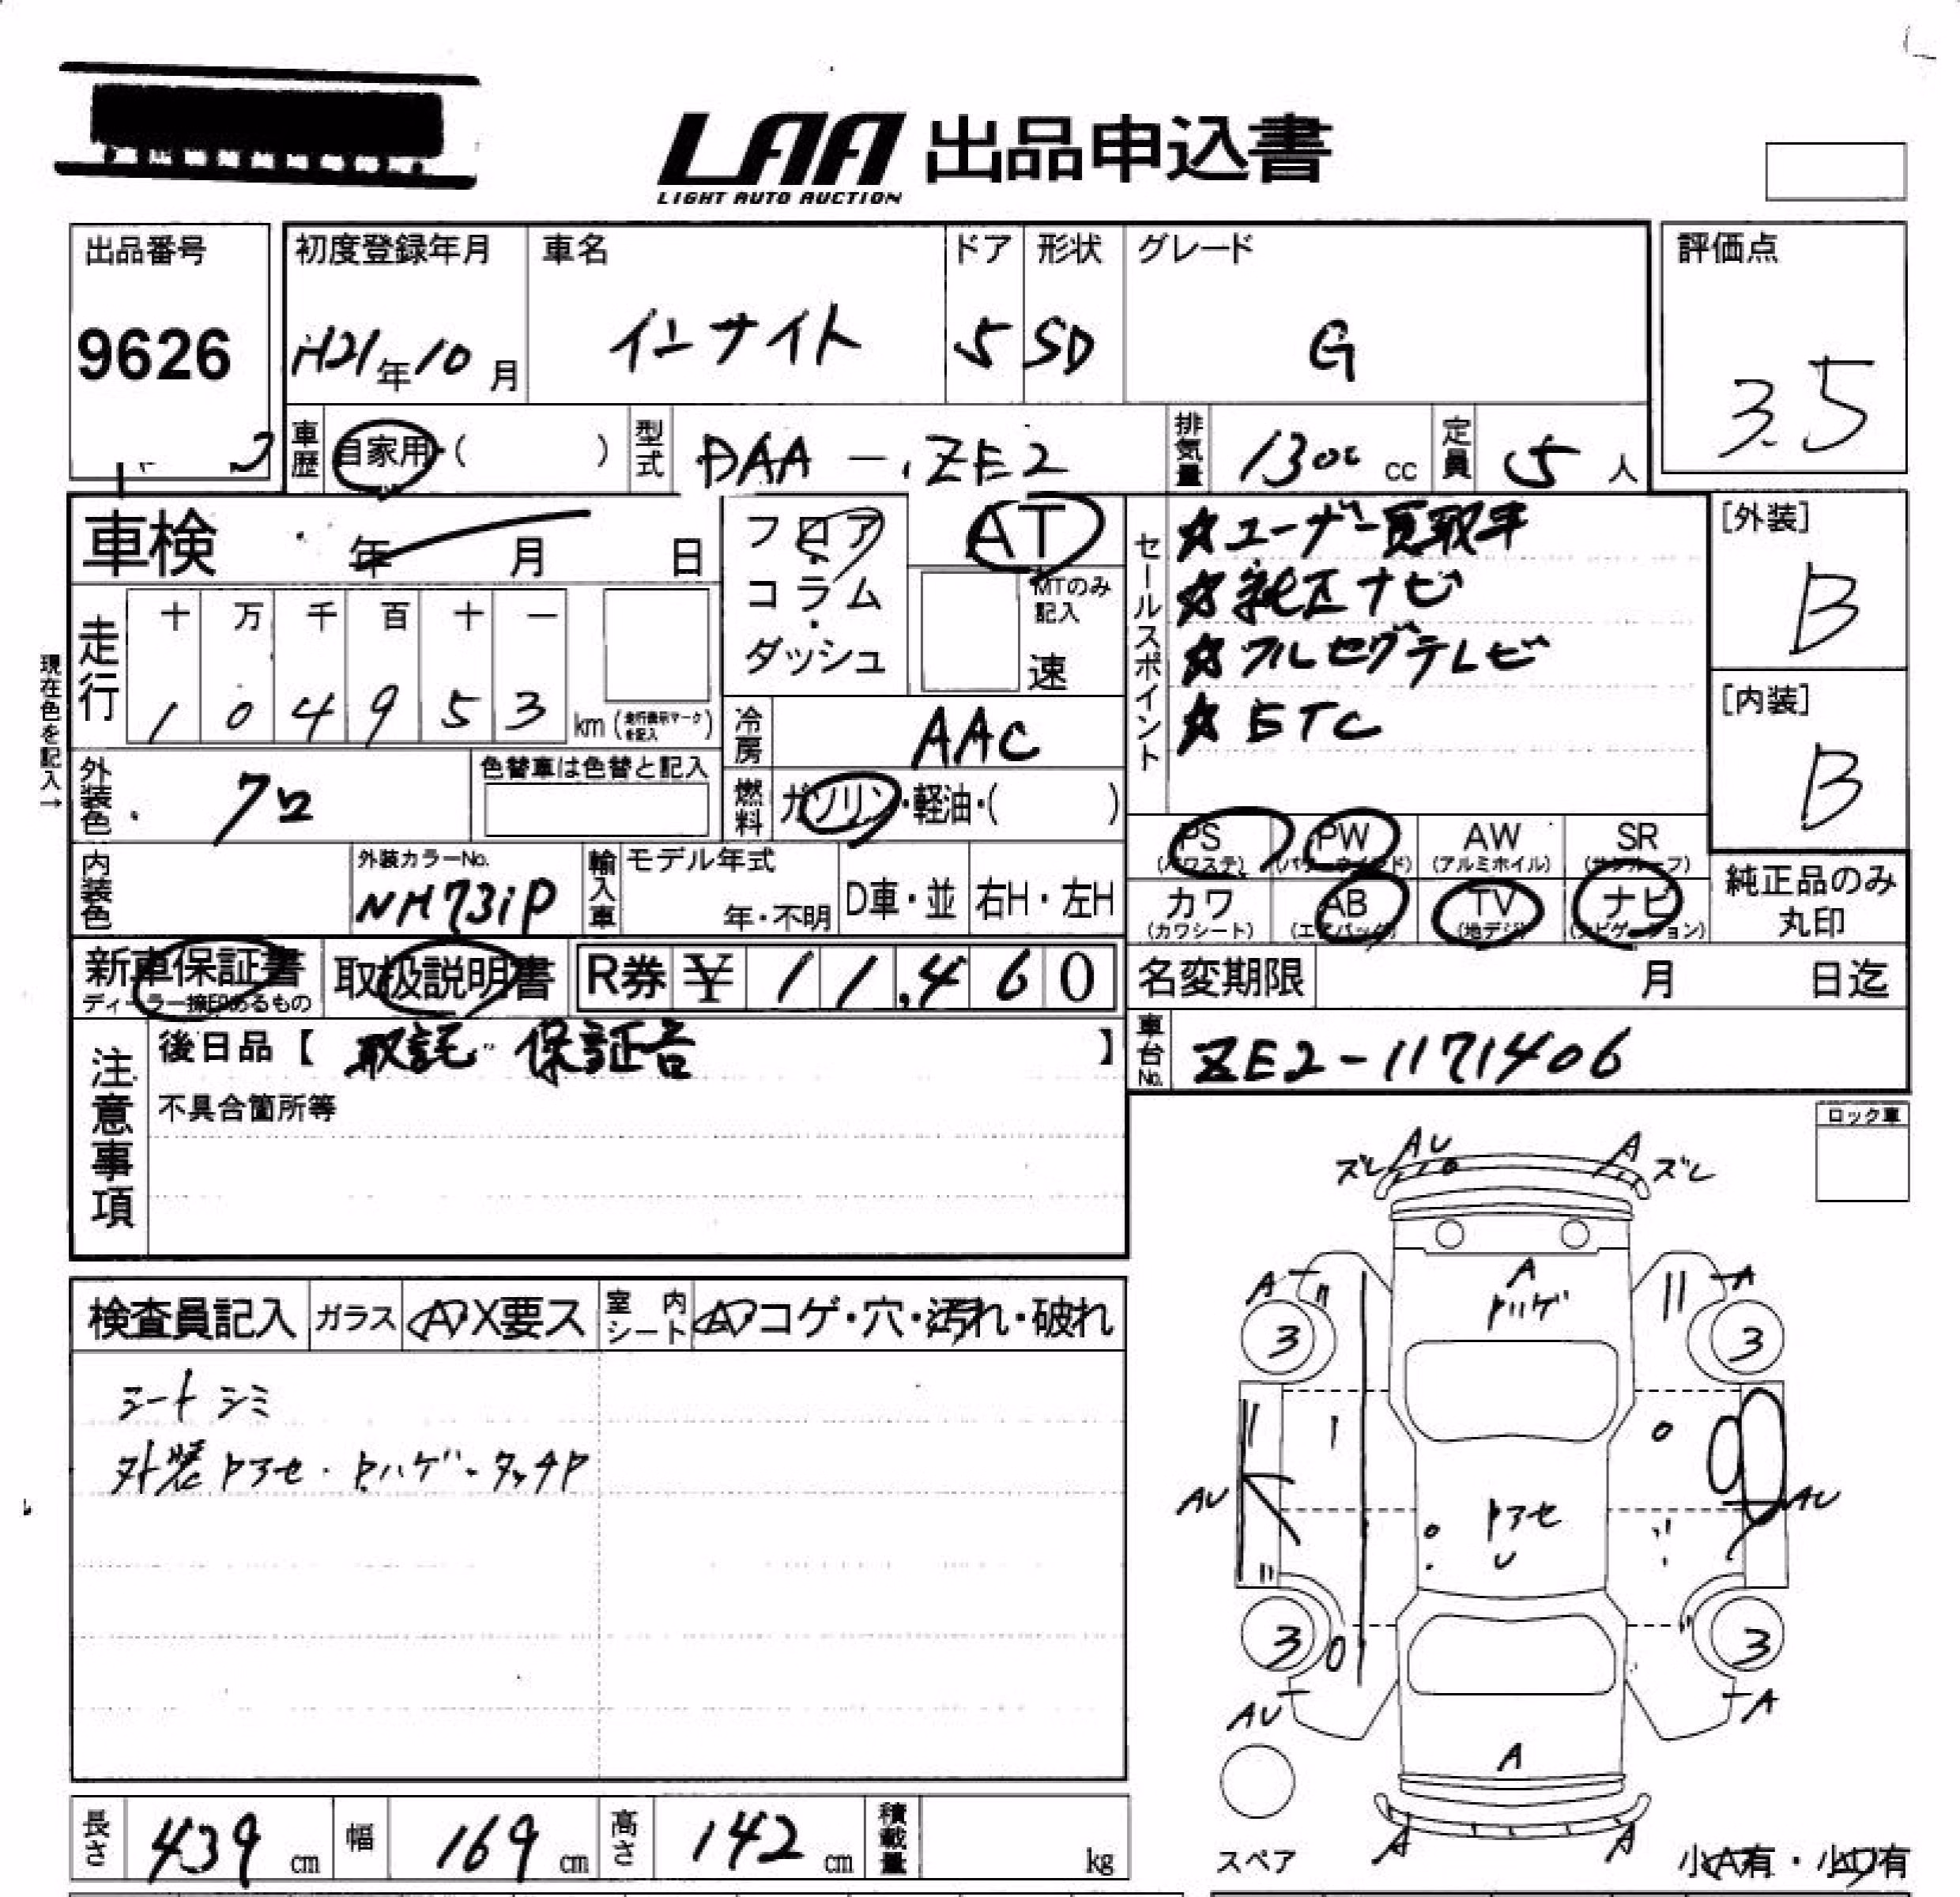 LAA 出品申込書
LIGHT AUTO AUCTION
出品番号
9626
初度登録年月
H21年10月
車名
インサイト
ドア
5
形状
SD
グレード
G
評価点
3.5
車歴 自家用・( )
型式 DAA-ZE2
排気量 1300 cc
定員 5人
車検 年 月 日
フロア・コラム・ダッシュ
AT
MTのみ記入
速
セールスポイント
☆ユーザー買取車
☆純正ナビ
☆フルセグテレビ
☆ETC
[外装]
B
[内装]
B
現在色を記入→
走行
十 万 千 百 十 一
1 0 4 9 5 3 km (走行表示マークを記入)
冷房 AAC
外装色 クロ
色替車は色替と記入
燃料 ガソリン・軽油・( )
PS (パワステ)
PW (パワーウインド)
AW (アルミホイル)
SR (サンルーフ)
内装色
外装カラーNo.
NH731P
輸入車
モデル年式
年・不明
D車・並
右H・左H
カワ (カワシート)
AB (エアバック)
TV (地デジ)
ナビ (ナビゲーション)
純正品のみ丸印
新車保証書
ディーラー捺印あるもの
取扱説明書
R券 ¥ 11,460
名変期限 月 日迄
注意事項
後日品【 取説 保証書 】
不具合箇所等
車台No. ZE2-1171406
ロック車
検査員記入
ガラス A・X要ス
室内シート A・コゲ・穴・汚れ・破れ
シートシミ
外装Pアセ・Pハゲ・タッチP
ズレ AU A ズレ
A A
A
Pハゲ
3 3
AU AU
Pアセ
U
3 3
AU A
A
A A
スペア
小A有・小U有
長さ 439 cm
幅 169 cm
高さ 142 cm
積載量 kg